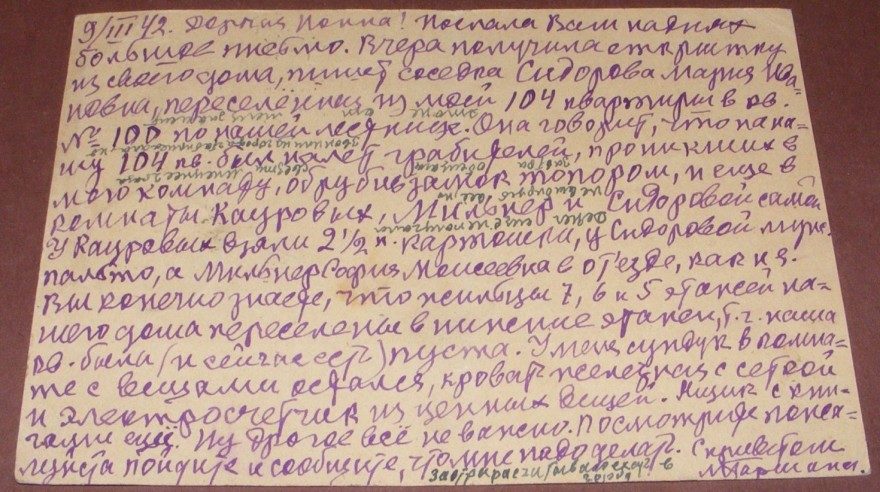 9/III 42. Дорогая Нонна! Послала Вам на днях
большое письмо. Вчера получила открытку
из своего дома, пишет соседка Сидорова Мария Ива-
новна, переселённая из моей 104 квартиры в кв.
№ 100 по нашей лестнице. Она говорит, что на на-
шу 104 кв. был налёт грабителей, проникших в
мою комнату, обрубив замок топором, и еще в
комнаты Кауровых, Мильнер и Сидоровой самой
У Кауровых взяли 2 1/2 к. картошки, у Сидоровой муж.
пальто, а Мильнер София Моисеевна в от'езде, как и я.
Вы конечно знаете, что жильцы 7, 6 и 5 этажей на-
шего дома переселены в нижние этажи, т.ч. наша
кв. была (и сейчас есть) пуста. У меня сундук в комна-
те с вещами остался, кровать железная с сеткой
и электросчетчик из ценных вещей. Ящик с кни-
гами ещё. Ну другое всё не важно. Посмотрите пожа-
луйста пойдите и сообщите, что мне надо делать. С приветом